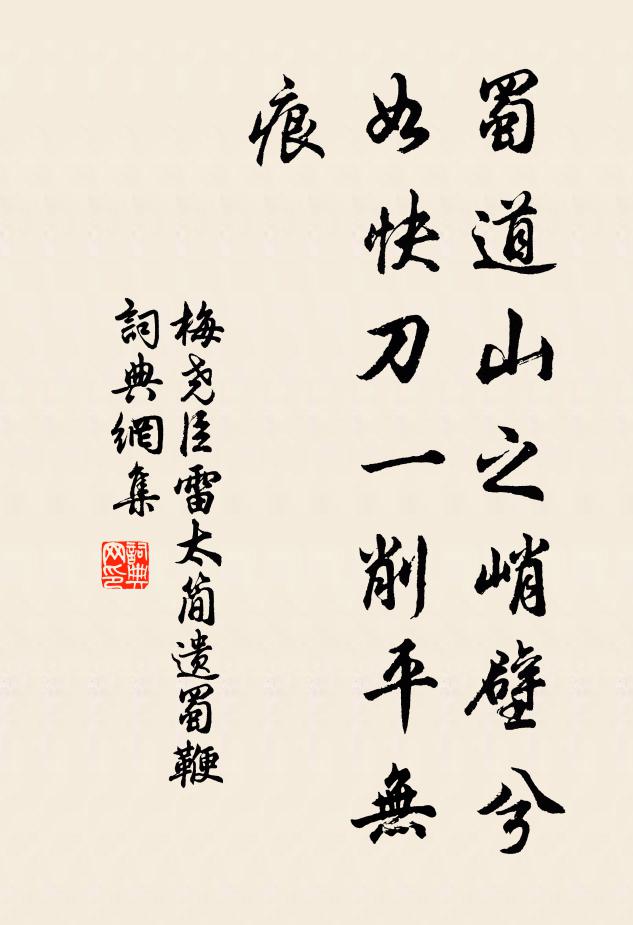 蜀道山之峭壁兮
如快刀一削平無
痕
梅尧臣雷太简遗蜀鞭
詞典網集
詞典网印